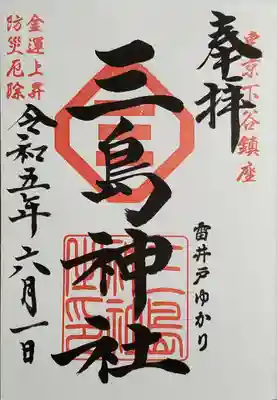 東京下谷鎮座
奉拝
雷井戸ゆかり
三島神社
金運上昇
防災厄除
令和五年六月一日